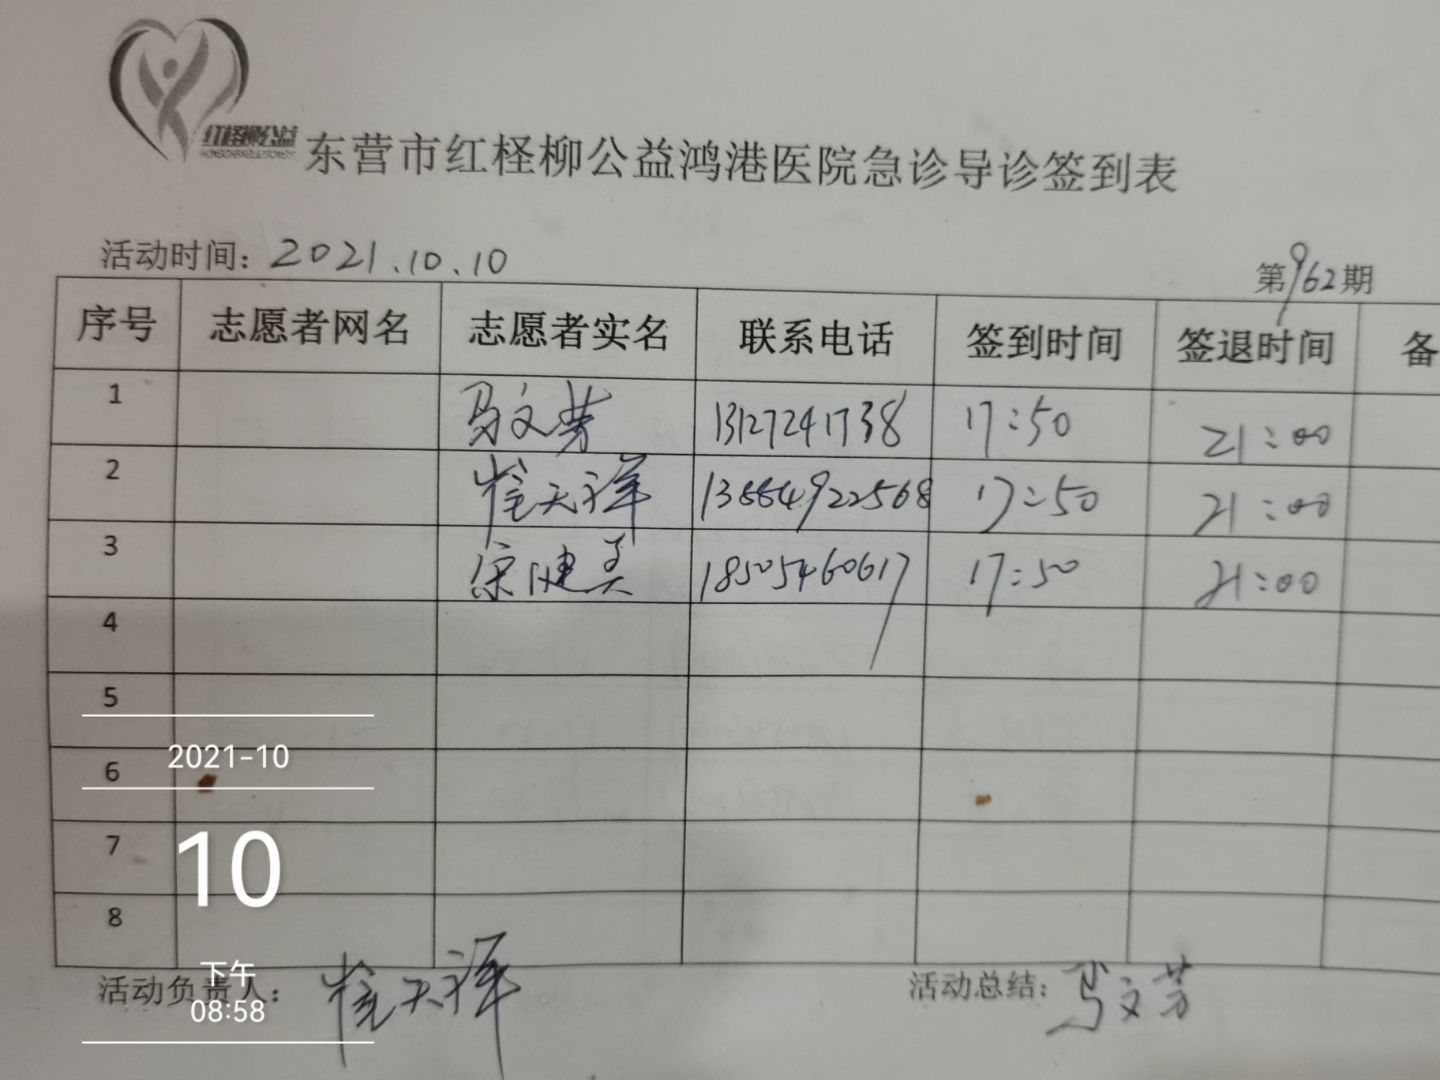 红柽柳公益
东营市红柽柳公益鸿港医院急诊导诊签到表
活动时间：2021.10.10
第962期
序号 志愿者网名 志愿者实名 联系电话 签到时间 签退时间 备
1 马文芳 13127241738 17:50 21:00
2 崔天祥 13884922568 17:50 21:00
3 宋健美 18505460617 17:50 21:00
4
5
6
7
8
活动负责人：崔天祥 活动总结：马文芳
2021-10
10
下午
08:58